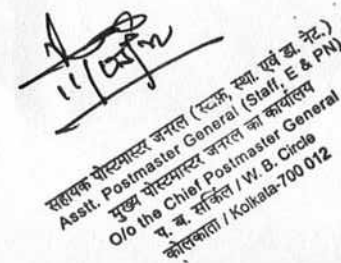 सहायक पोस्टमास्टर जनरल (स्टाफ़, स्था. एवं डा. नेट.)
Asstt. Postmaster General (Staff, E & PN)
मुख्य पोस्टमास्टर जनरल का कार्यालय
O/o the Chief Postmaster General
प. ब. सर्किल / W. B. Circle
कोलकाता / Kolkala-700 012